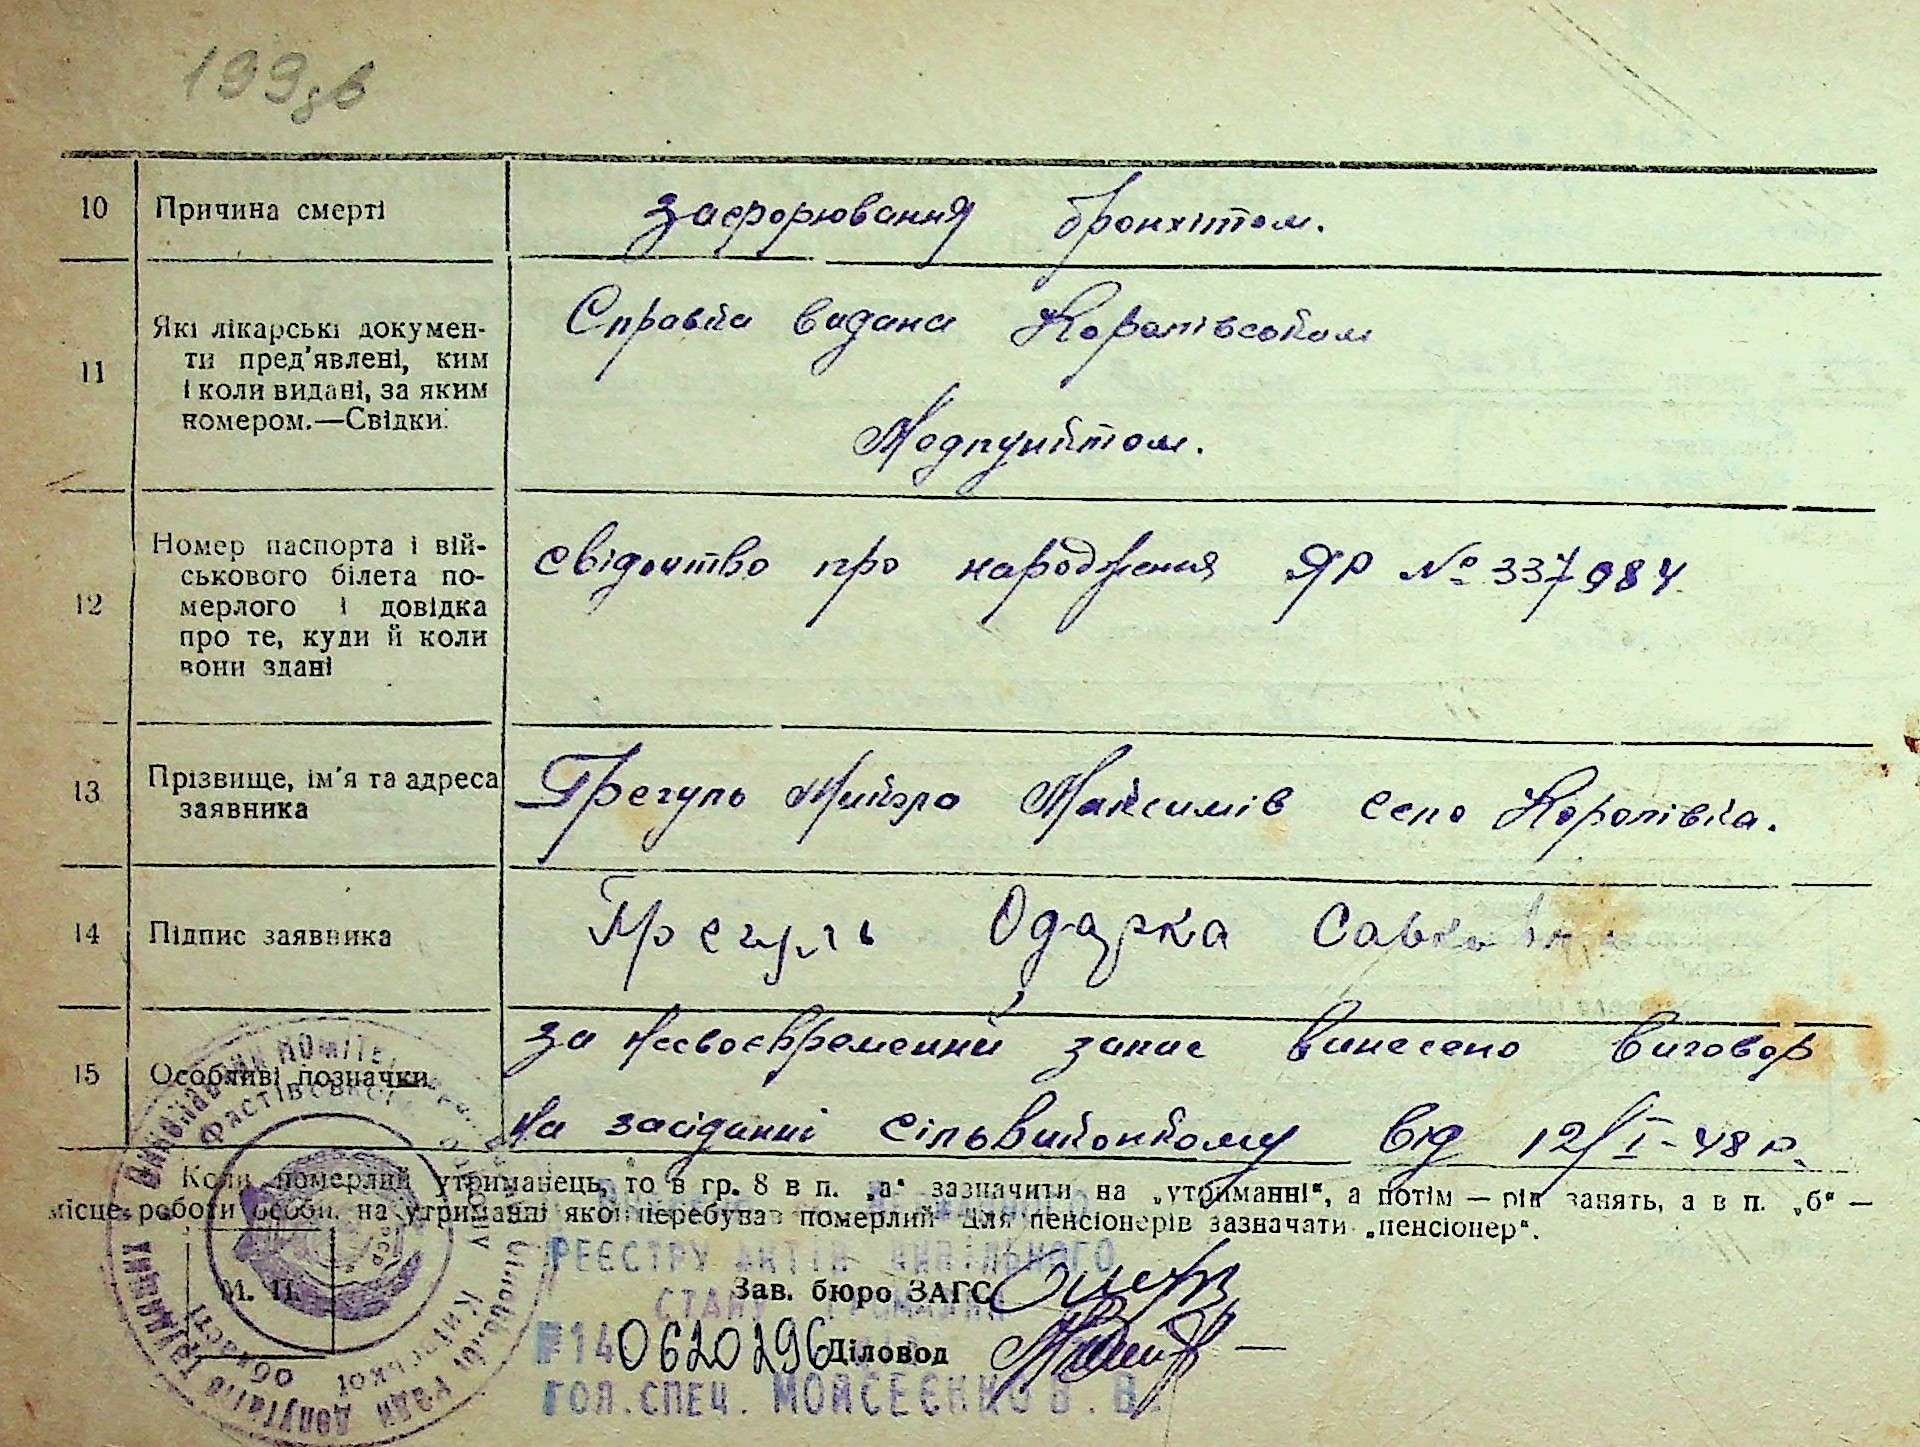 199 зв
10 Причина смерті захворювання бронхітом.
11 Які лікарські докумен-
ти пред'явлені, ким
і коли видані, за яким
номером.—Свідки.
Справка видана Королівським
Медпунктом.
12 Номер паспорта і вій-
ськового білета по-
мерлого і довідка
про те, куди й коли
вони здані
свідоцтво про народження ЯР № 337984
13 Прізвище, ім'я та адреса
заявника
Трегуль Максимів село Королівка.
14 Підпис заявника Трегуль Одарка Савковна
15 Особливі позначки
за несвоєвременний запис винесено виговор
на засіданні сільвиконкому від 12/I-48 р.
Коли померлий утриманець, то в гр. 8 в п. „а" зазначити на „утриманні", а потім — рід занять, а в п. „б" —
місце роботи особи, на утриманні якої перебував померлий Для пенсіонерів зазначати „пенсіонер".
РЕЄСТРУ АКТІВ ЦИВІЛЬНОГО
СТАНУ ГРОМАДЯН
М. П.
Зав. бюро ЗАГС
№140620296
Діловод
ГОЛ.СПЕЦ. МОЙСЕЄНКО В. В.
Виконавчий комітет
Фастівської
Київської області
депутатів трудящих